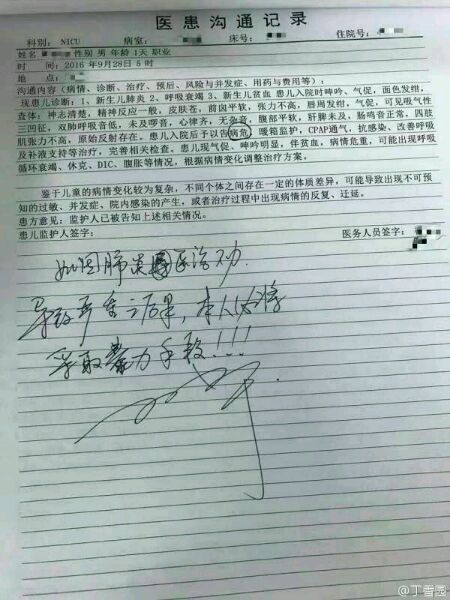 医患沟通记录
科别：NICU 病室： 床号： 住院号：
姓名 性别 男 年龄 1天 职业
时 间：2016 年9月28日 5 时
地 点：
沟通内容（病情、诊断、治疗、预后、风险与并发症、用药与费用等）：
现患儿诊断：1、新生儿肺炎 2、呼吸衰竭 3、新生儿贫血 患儿入院时呻吟、气促，面色发绀，
查体：神志清楚，精神反应一般，皮肤苍，前囟平软，张力不高，唇周发绀，气促，可见吸气性
三四征，双肺呼吸音低，未及啰音，心律齐，无杂音，腹部平软，肝脾未及，肠鸣音正常，四肢
肌张力不高，原始反射存在。患儿入院后予以告病危、暖箱监护，CPAP通气，抗感染、改善呼吸
及补液支持等治疗，完善相关检查，患儿现气促、呻吟明显，伴贫血，病情危重，可能出现呼吸
循环衰竭、休克、DIC、腹胀等情况，根据病情变化调整治疗方案。
鉴于儿童的病情变化较为复杂，不同个体之间存在一定的体质差异，可能导致出现不可预
知的过敏、并发症、院内感染的产生，或者治疗过程中出现病情的反复、迁延。
患方意见：监护人已被告知上述相关情况。
患儿监护人签字： 医务人员签字：
如因肺炎医治不力
导致严重之后果，本人必将
采取暴力手段!!!
@丁香园